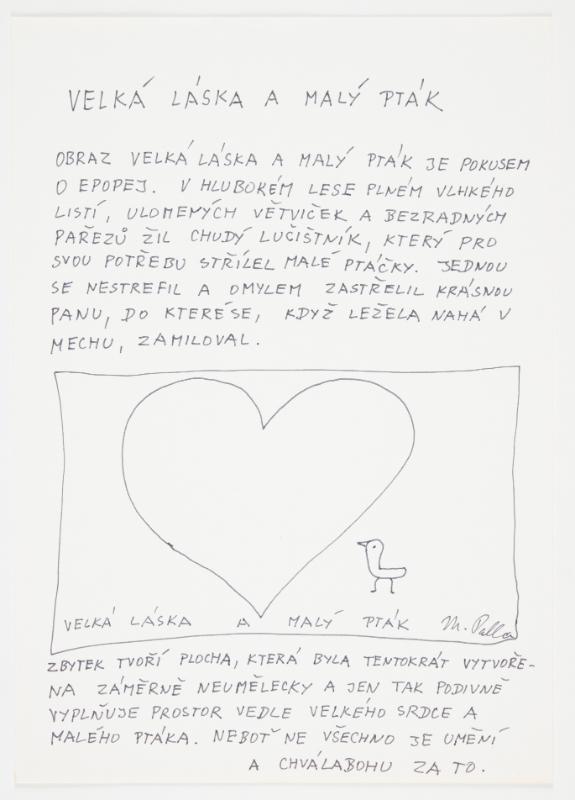 VELKÁ LÁSKA A MALÝ PTÁK
OBRAZ VELKÁ LÁSKA A MALÝ PTÁK JE POKUSEM
O EPOPEJ. V HLUBOKÉM LESE PLNÉM VLHKÉHO
LISTÍ, ULOMENÝCH VĚTVIČEK A BEZRADNÝCH
PAŘEZŮ ŽIL CHUDÝ LUČIŠTNÍK, KTERÝ PRO
SVOU POTŘEBU STŘÍLEL MALÉ PTÁČKY. JEDNOU
SE NESTREFIL A OMYLEM ZASTŘELIL KRÁSNOU
PANU, DO KTERÉSE, KDYŽ LEŽELA NAHÁ V
MECHU, ZAMILOVAL.
VELKÁ LÁSKA A MALÝ PTÁK M. Palla
ZBYTEK TVOŘÍ PLOCHA, KTERÁ BYLA TENTOKRÁT VYTVOŘE-
NA ZÁMĚRNĚ NEUMĚLECKY A JEN TAK PODIVNĚ
VYPLŇUJE PROSTOR VEDLE VELKÉHO SRDCE A
MALÉHO PTÁKA. NEBOŤ NE VŠECHNO JE UMĚNÍ
A CHVÁLABOHU ZA TO.